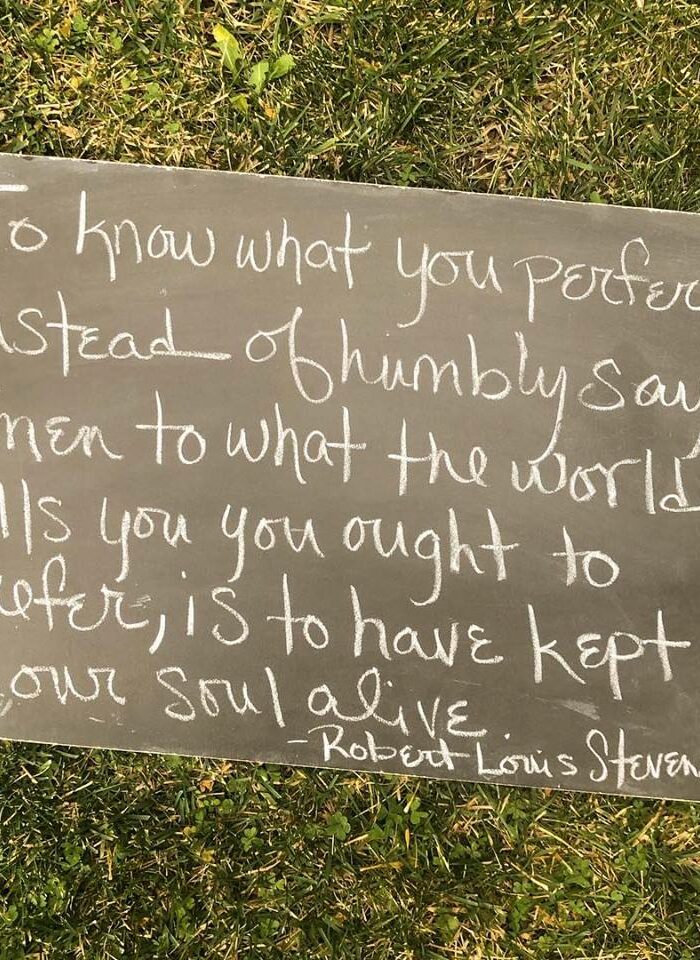 To know what you perfer
stead of humbly say
men to what the world
lls you you ought to
efer, is to have kept
our soul alive
-Robert Louis Steven